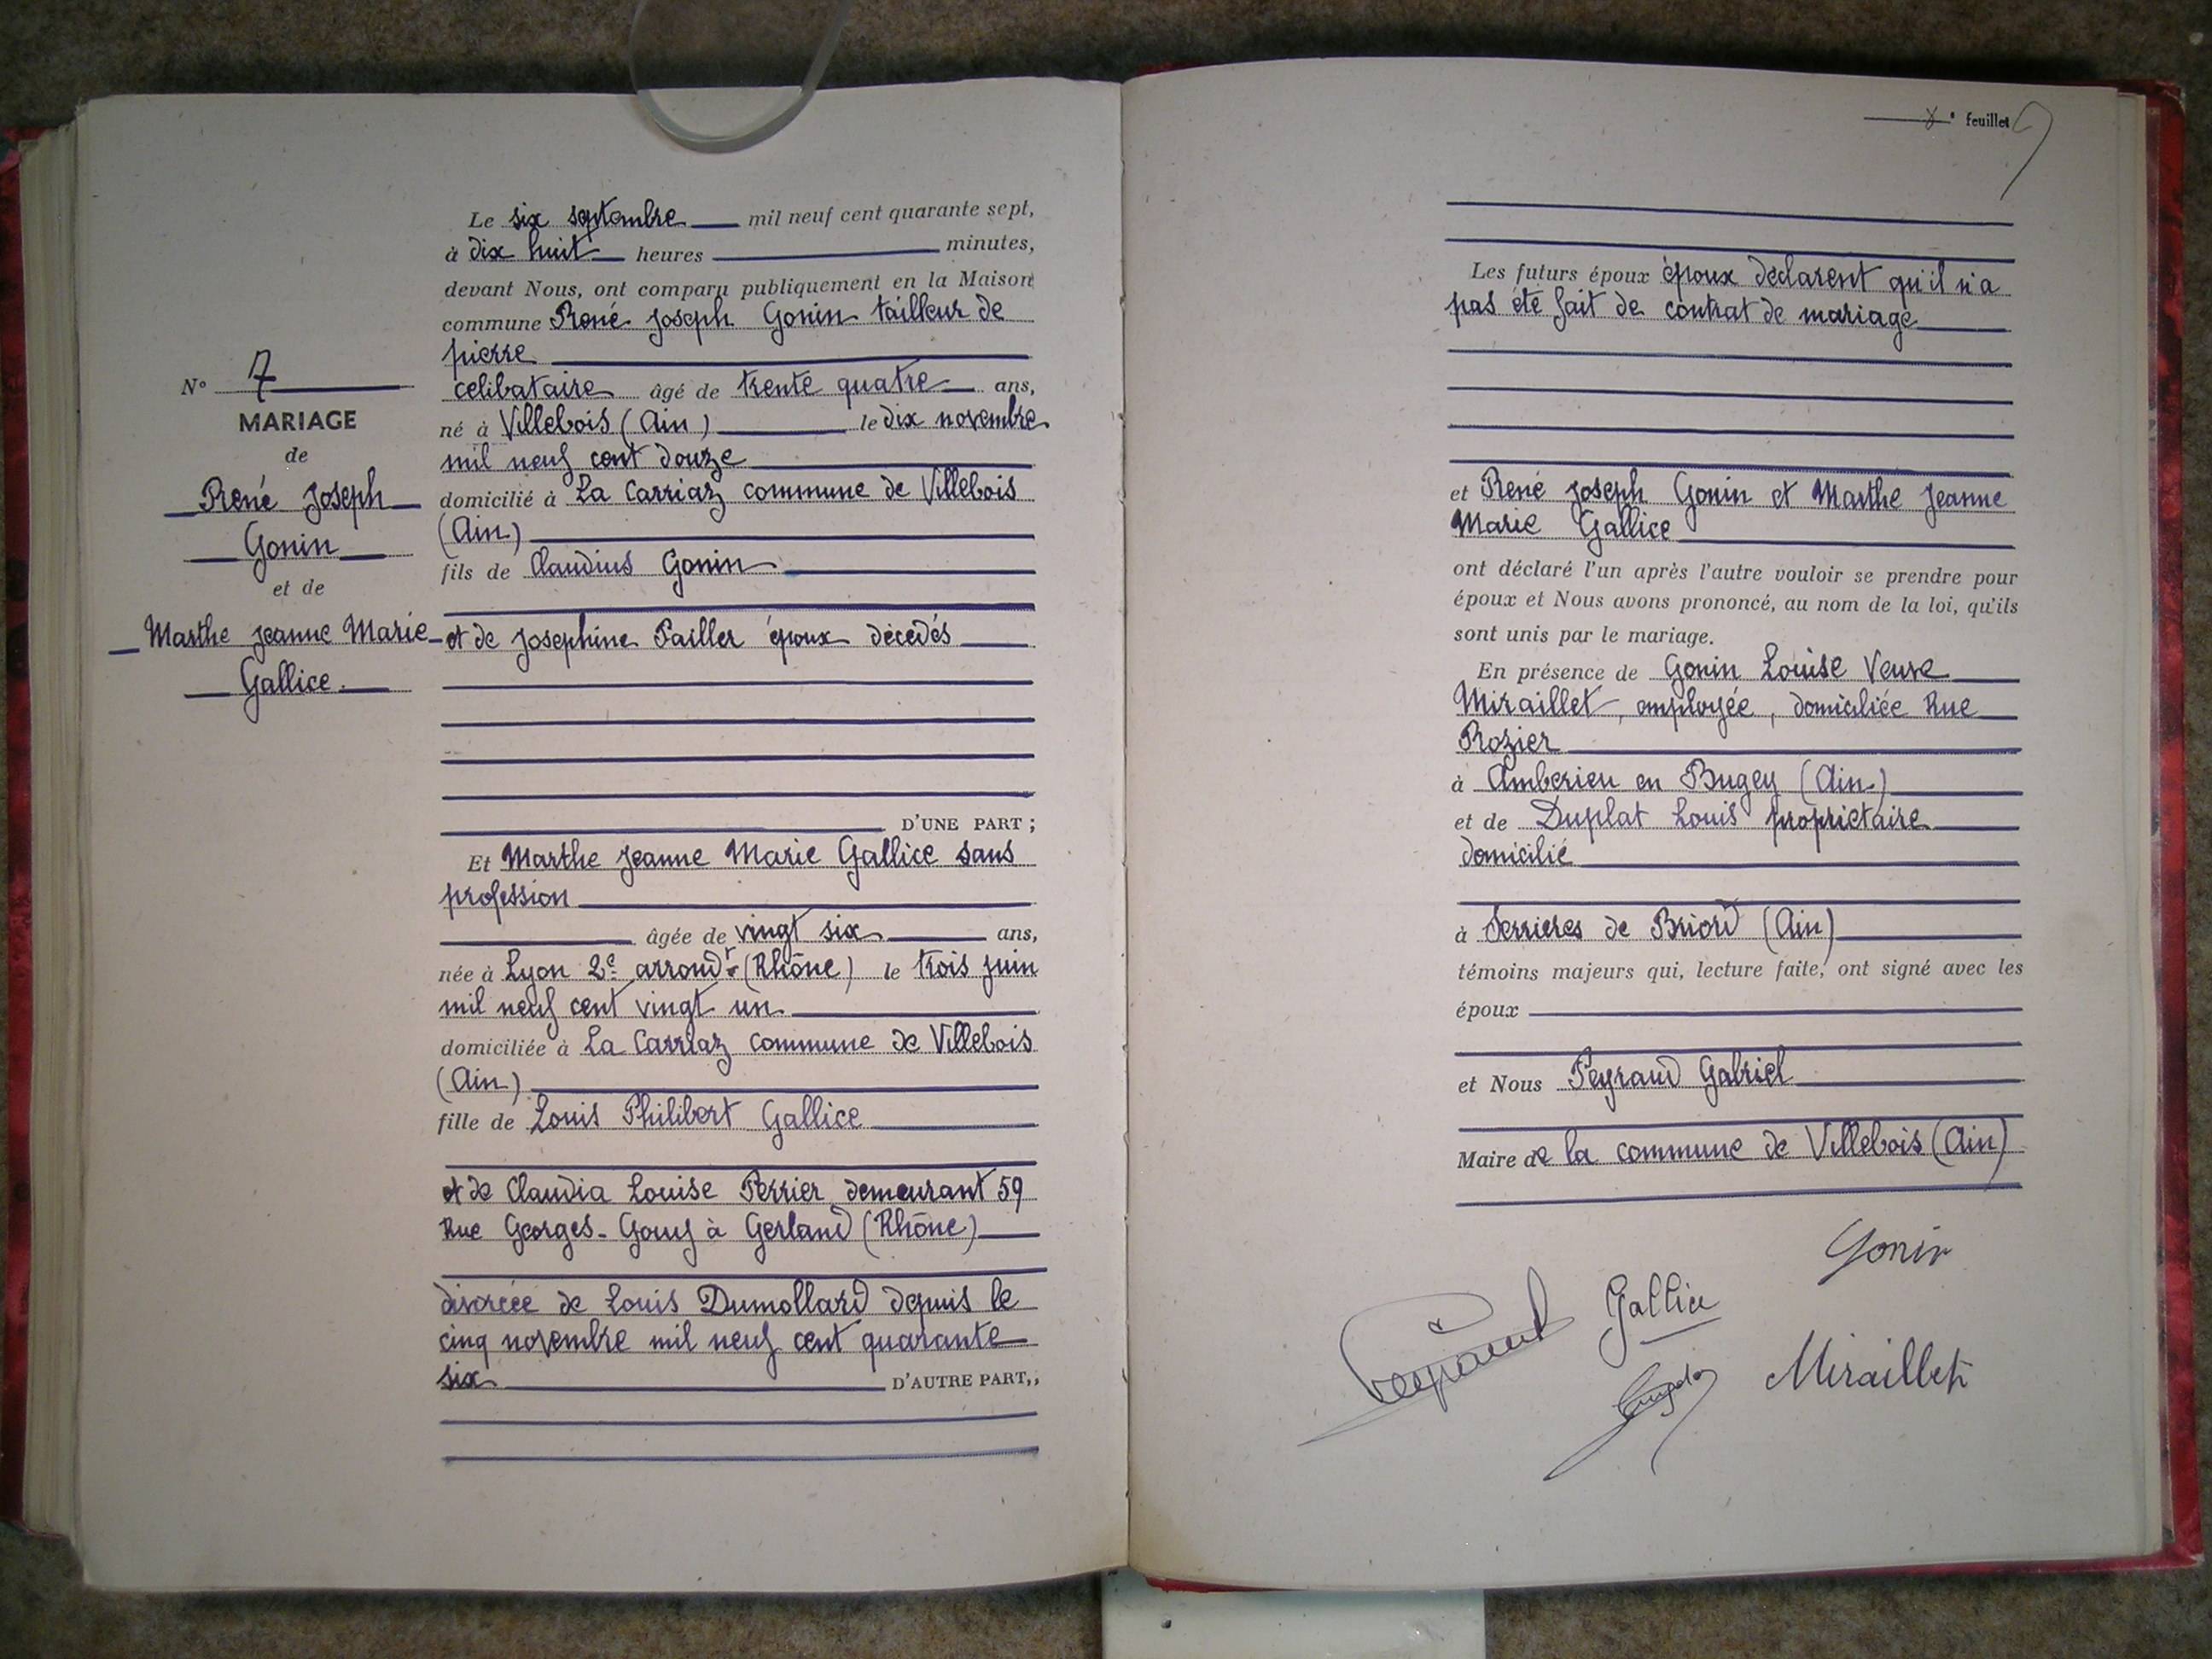 Le six septembre mil neuf cent quarante sept,
à dix huit heures minutes,
devant Nous, ont comparu publiquement en la Maison
commune René Joseph Gonin tailleur de
pierre
celibataire âgé de trente quatre ans,
né à Villebois (Ain) le dix novembre
mil neuf cent douze
domicilié à La Carriaz commune de Villebois
(Ain)
fils de Claudius Gonin
et de Josephine Pailler époux décédés
D'UNE PART ;
Et Marthe Jeanne Marie Gallice sans
profession
âgée de vingt six ans,
née à Lyon 2e arrondt (Rhône) le trois juin
mil neuf cent vingt un
domiciliée à La Carriaz commune de Villebois
(Ain)
fille de Louis Philibert Gallice
et de Claudia Louise Perrier demeurant 59
Rue Georges-Gouy à Gerland (Rhône)
divorcée de Louis Dumollard depuis le
cinq novembre mil neuf cent quarante
six D'AUTRE PART,;
N° 7
MARIAGE
de
René Joseph
Gonin
et de
Marthe Jeanne Marie
Gallice.
8e feuillet
Les futurs époux époux déclarent qu'il n'a
pas été fait de contrat de mariage
et René Joseph Gonin et Marthe Jeanne
Marie Gallice
ont déclaré l'un après l'autre vouloir se prendre pour
époux et Nous avons prononcé, au nom de la loi, qu'ils
sont unis par le mariage.
En présence de Gonin Louise Veuve
Miraillet, employée, domiciliée Rue
Rozier
à Amberieu en Bugey (Ain)
et de Duplat Louis propriétaire
domicilié
à Serrieres de Briord (Ain)
témoins majeurs qui, lecture faite, ont signé avec les
époux
et Nous Peyraud Gabriel
Maire de la commune de Villebois (Ain)
Gonin
Gallice
Peyraud
Miraillet